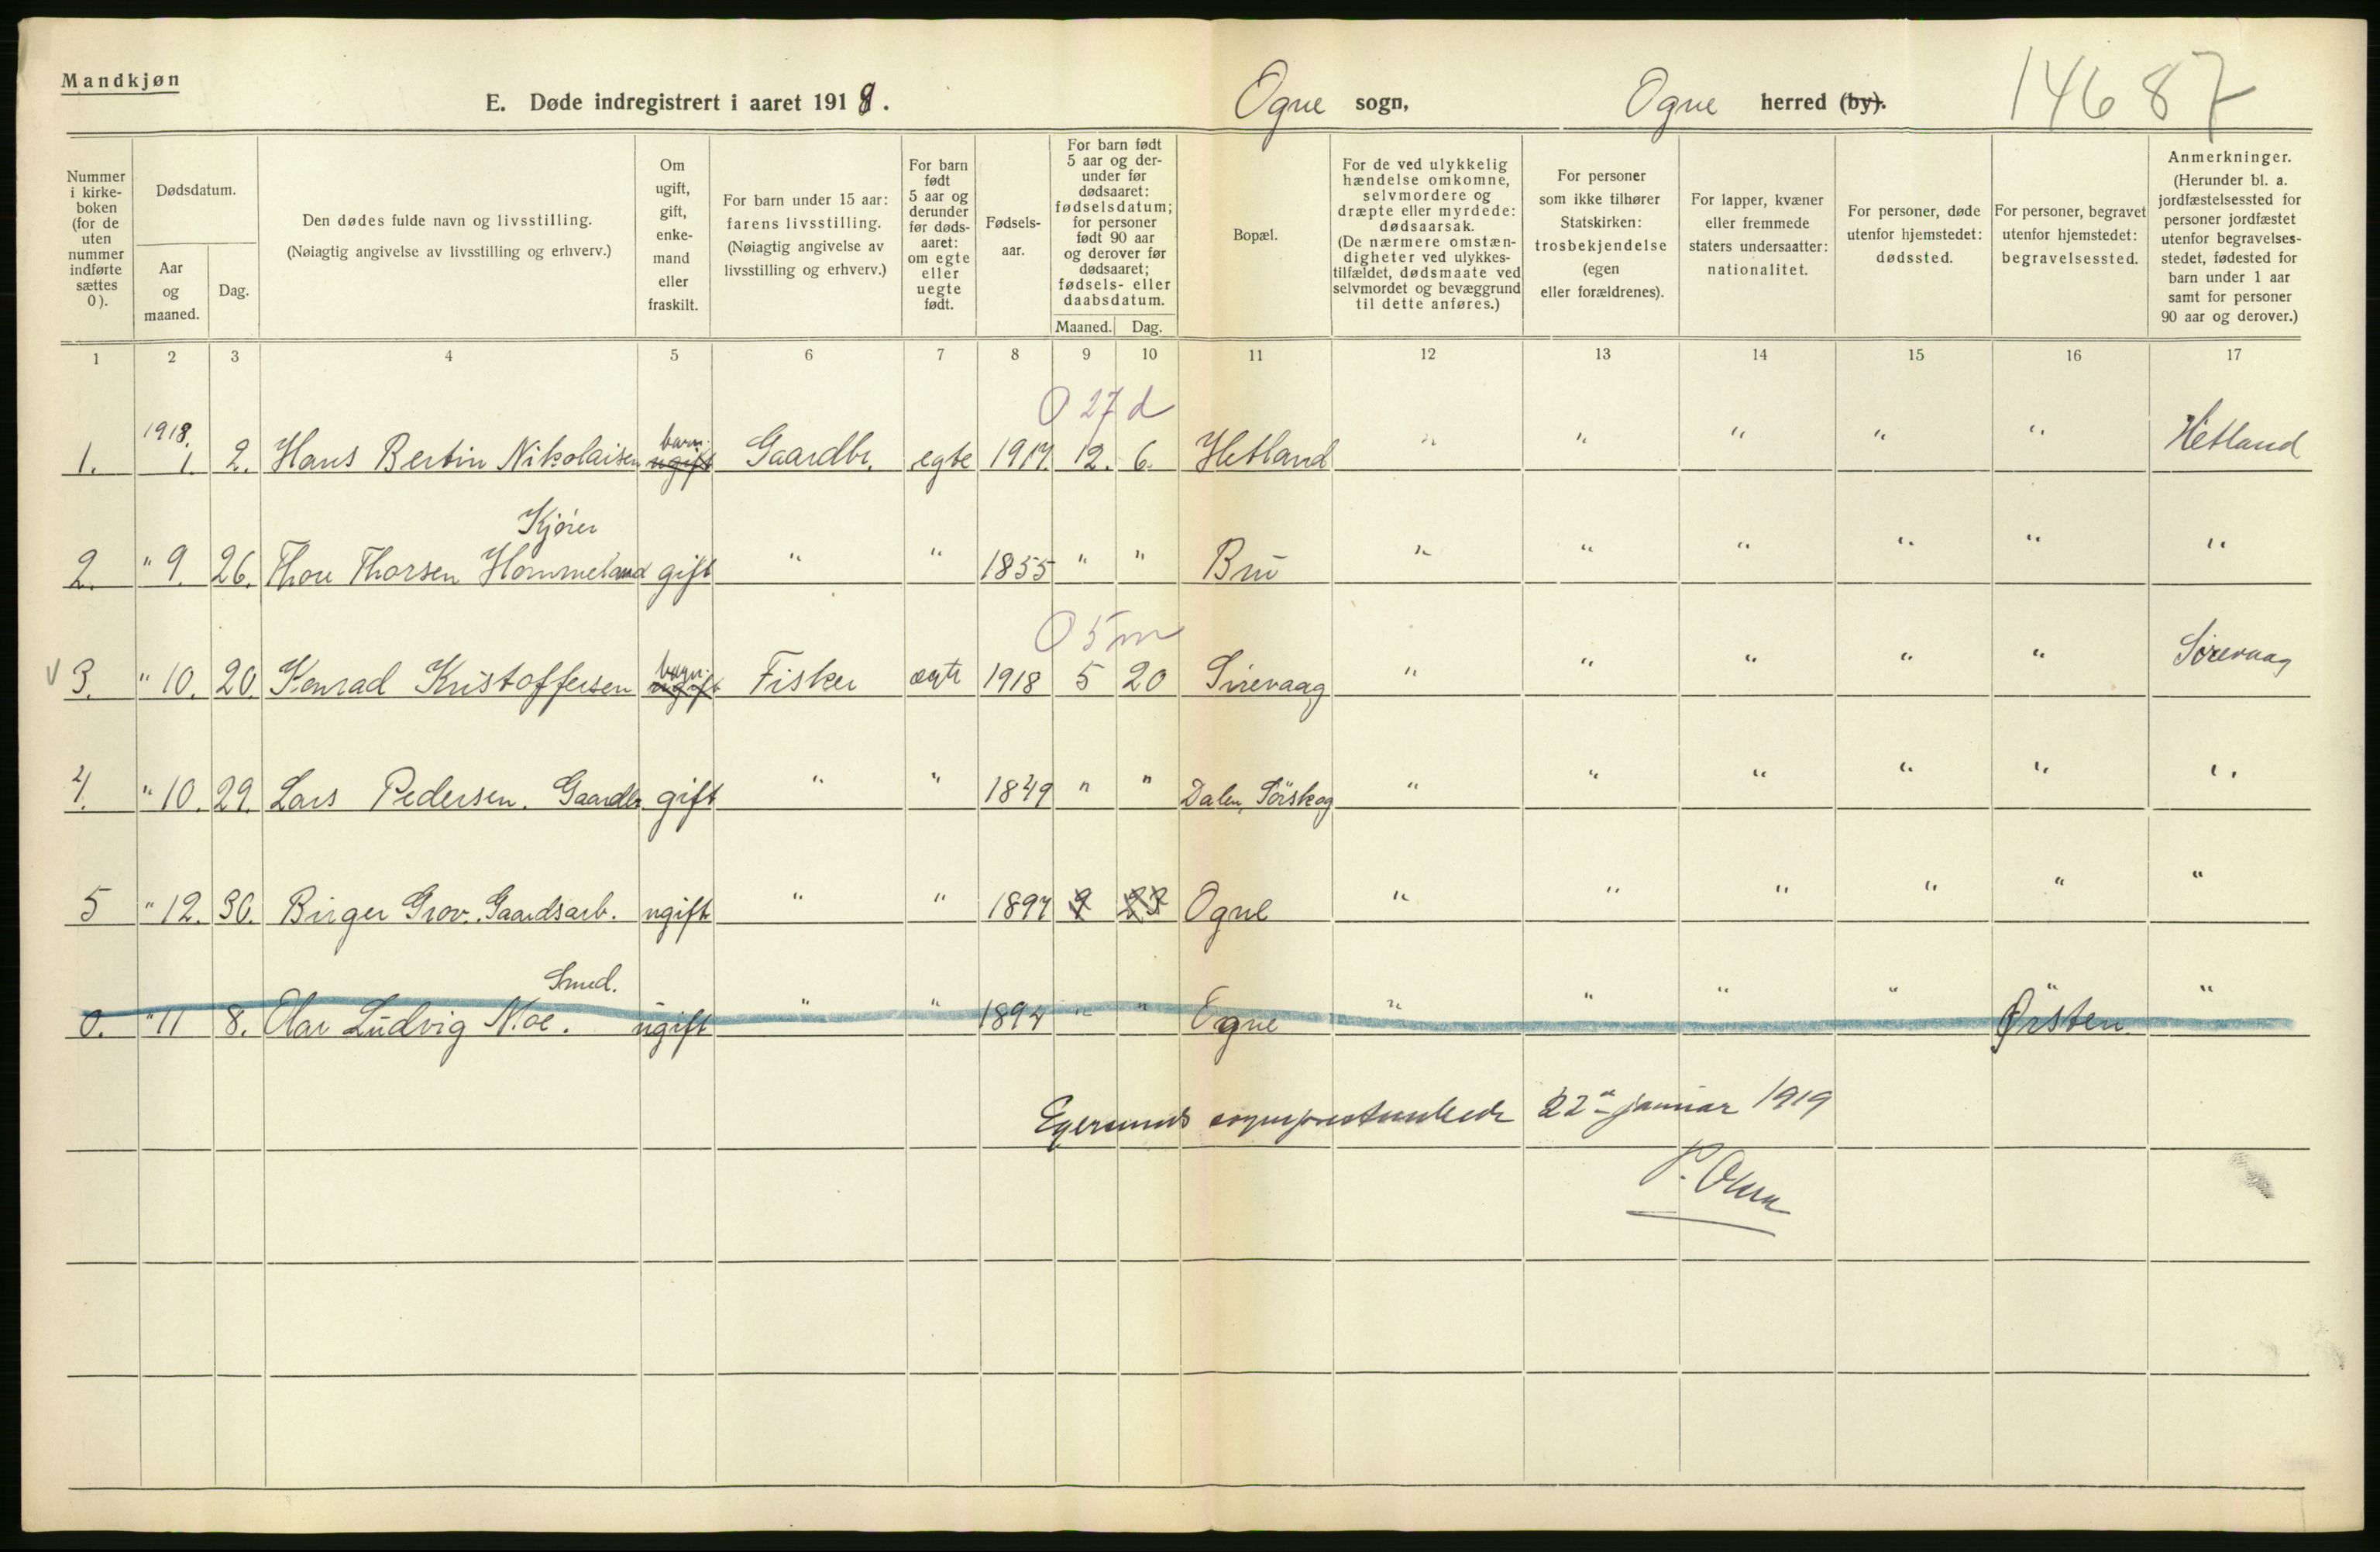 Mandkjøn
E. Døde indregistrert i aaret 1918. Ogne sogn, Ogne herred (by). 14687
Nummer i kirke-boken (for de uten nummer indførte sættes 0).
Dødsdatum.
Aar og maaned.
Dag.
Den dødes fulde navn og livsstilling.
(Nøiagtig angivelse av livsstilling og erhverv.)
Om ugift, gift, enke-mand eller fraskilt.
For barn under 15 aar: farens livsstilling. (Nøiagtig angivelse av livsstilling og erhverv.)
For barn født 5 aar og derunder før døds-aaret: om egte eller uegte født.
Fødsels-aar.
For barn født 5 aar og der-under før dødsaaret: fødselsdatum; for personer født 90 aar og derover før dødsaaret; fødsels- eller daabsdatum.
Maaned. Dag.
Bopæl.
For de ved ulykkelig hændelse omkomne, selvmordere og dræpte eller myrdede: dødsaarsak. (De nærmere omstæn-digheter ved ulykkes-tilfældet, dødsmaate ved selvmordet og bevæggrund til dette anføres.)
For personer som ikke tilhører Statskirken: trosbekjendelse (egen eller forældrenes).
For lapper, kvæner eller fremmede staters undersaatter: nationalitet.
For personer, døde utenfor hjemstedet: dødssted.
For personer, begravet utenfor hjemstedet: begravelsessted.
Anmerkninger. (Herunder bl. a. jordfæstelsessted for personer jordfæstet utenfor begravelses-stedet, fødested for barn under 1 aar samt for personer 90 aar og derover.)
1 2 3 4 5 6 7 8 9 10 11 12 13 14 15 16 17
0 27 d
1918. barn.
1. 1. 2. Hans Bertin Nikolaisen ugift Gaardbr. egte 1917. 12. 6. Hetland " " " " " Hetland
Kjører
2. " 9. 26. Thore Thorsen Hommeland gift " " 1855 " " Bru " " " " " "
0 5 m
barn.
v 3. " 10. 20. Konrad Kristoffersen ugift Fisker ægte 1918 5 20 Sirevaag " " " " " Sirevaag
4. " 10. 29. Lars Pedersen. Gaardbr. gift " " 1849 " " Dalen, Sørskog " " " " " "
5 " 12. 30. Birger Grov. Gaardsarb. ugift " " 1897 9 23 Ogne " " " " " "
Smed.
0. " 11 8. Olav Ludvig Moe. ugift " " 1894 " " Ogne " " " " " Ørsten. "
Egersunds sogneprestembede 22de januar 1919
P. Olsen